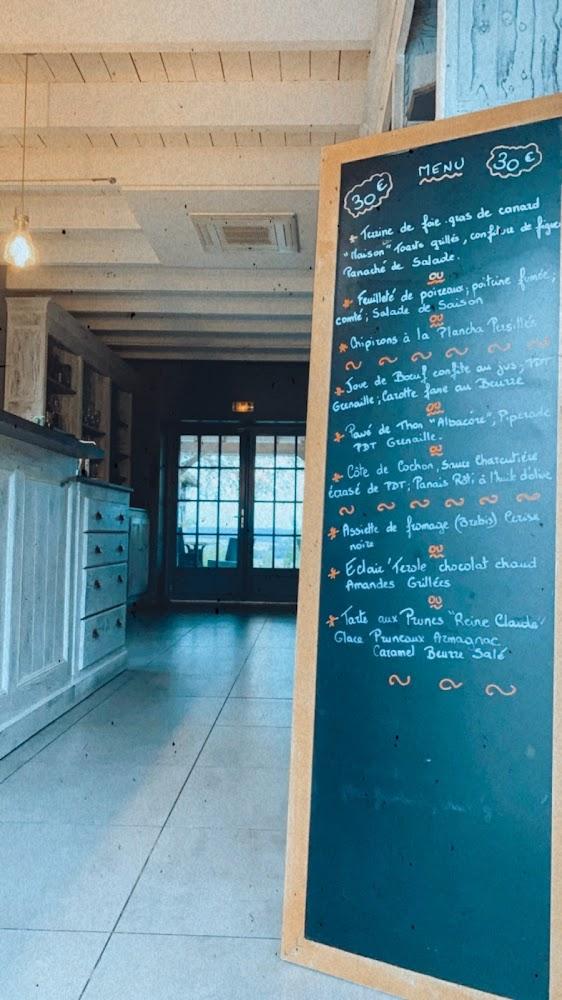 30€ MENU 30€
* Terrine de foie gras de canard
"Maison" Toasts grillés, confiture de figue
Panaché de Salade.
ou
* Feuilleté de poireaux; poitrine fumée;
comté; Salade de Saison
ou
* Chipirons à la Plancha Persillés
* Joue de Boeuf confite au jus; PDT
Grenaille; Carotte fane au Beurre
ou
* Pavé de Thon "Albacore", Piperade
PDT Grenaille.
ou
* Côte de Cochon, Sauce Charcutière
écrasé de PDT; Panais Rôti à l'huile d'olive
* Assiette de fromage (Brebis) Cerise
noire
ou
* Éclair chocolat chaud
Amandes Grillées
ou
* Tarte aux Prunes "Reine Claude"
Glace Pruneaux Armagnac
Caramel Beurre Salé